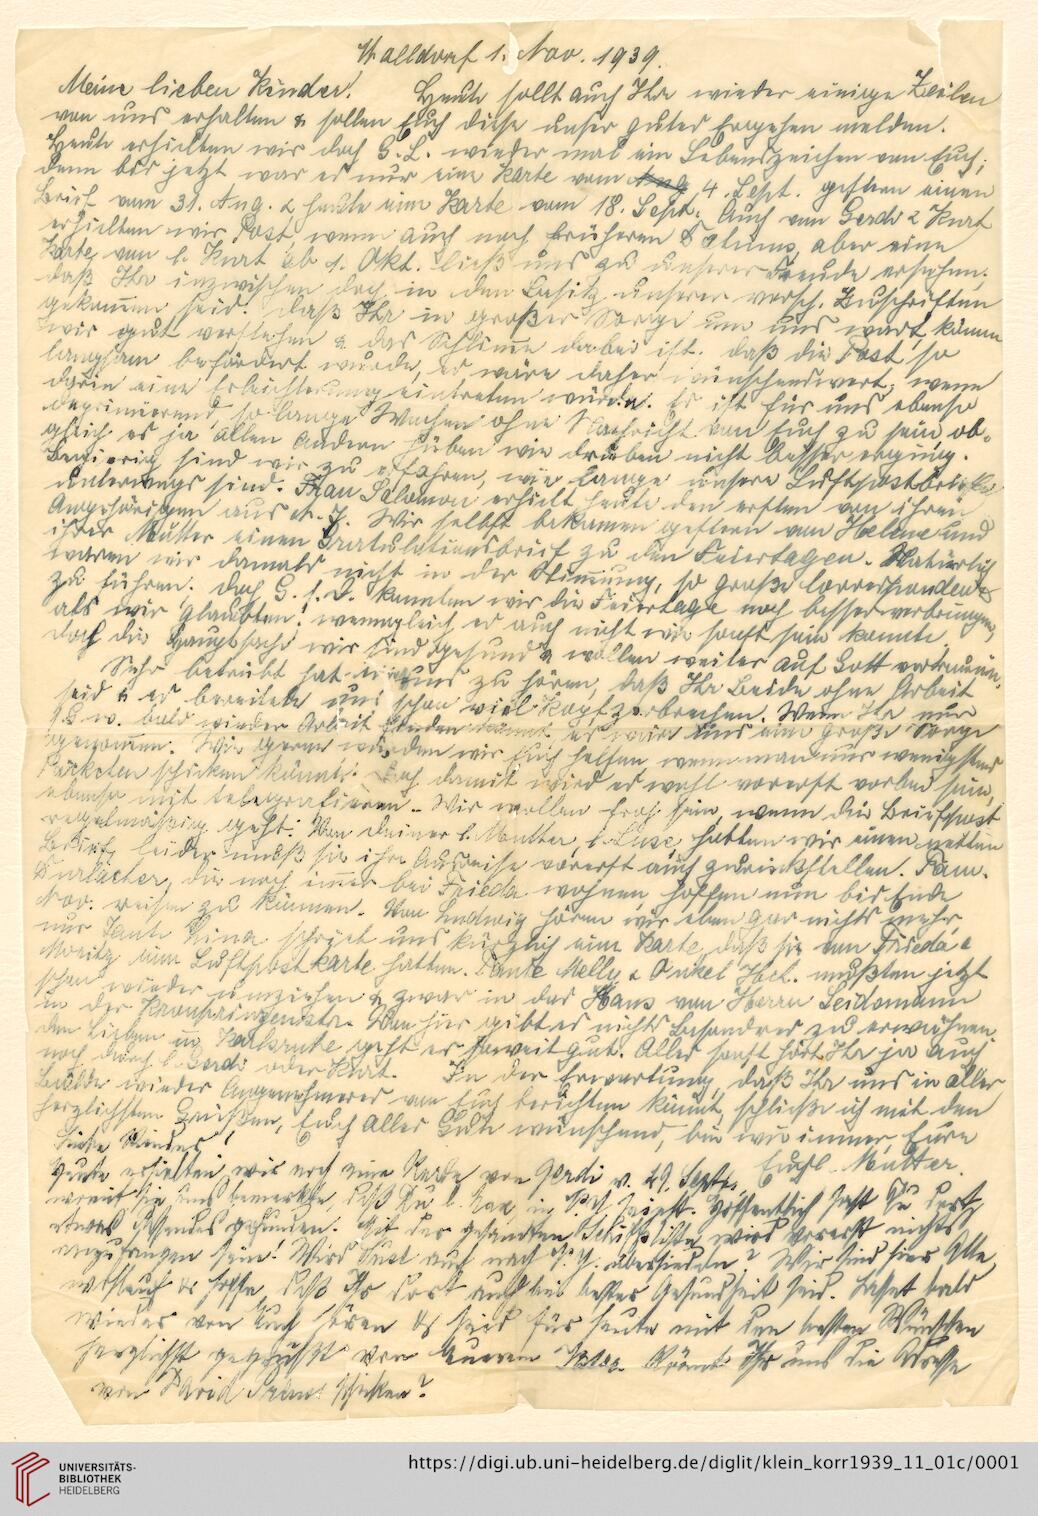 Walldorf 1. Nov. 1939.
Meine lieben Kinder! Heute sollt auch Ihr wieder einige Zeilen
von uns erhalten & sollen Euch diese unser gutes Ergehen melden.
Heute erhielten wir doch G. L. wieder mal ein Lebenszeichen von Euch;
denn bis jetzt war es nur eine Karte vom Aug. 4. Sept. gestern einen
Brief vom 31. Aug. & heute eine Karte vom 18. Sept. Auch von Gerdi & Kurt
erhielten wir Post, wenn auch noch früheren Datums, aber eine
Karte von l. Kurt ab 1. Okt. ließ uns zu unserer Freude ersehen,
daß Ihr inzwischen doch in den Besitz unserer versch. Zuschriften
gekommen seid. Daß Ihr in großer Sorge um uns wart, können
wir gut verstehen & das Schlimme dabei ist, daß die Post so
langsam befördert wurde, es wäre daher wünschenswert, wenn
darin eine Erleichterung eintreten würde. Es ist für uns ebenso
deprimierend, so lange Wochen ohne Nachricht von Euch zu sein, ob-
gleich es ja allen Andern hüben wie drüben nicht besser erging.
Begierig sind wir zu erfahren, wie lange unsere Luftpostbriefe
unterwegs sind. Frau Salomon erhielt heute den ersten von ihren
Angehörigen aus N. J. Wir selbst bekamen gestern von Helene und
ihrer Mutter einen Gratulationsbrief zu den Feiertagen. Natürlich
waren wir damals nicht in der Stimmung, so große Correspondenz
zu führen. Doch G. s. D. konnten wir die Feiertage noch besser verbringen,
als wir glaubten; wenngleich es auch nicht wie sonst sein konnte,
doch die Hauptsache wir sind gesund & wollen weiter auf Gott vertrauen.
Sehr betrübt hat uns zu hören, daß Ihr Beide ohne Arbeit
seid & es bereitete uns schon viel Kopfzerbrechen. Wenn Ihr nur
s. G. w. bald wieder Arbeit finden könnt, es wäre uns eine große Sorge
genommen. Wie gerne würden wir Euch helfen, wenn man nur wenigstens
Päckchen schicken könnte. Doch damit wird es wohl vorerst vorbei sein,
ebenso mit telegrafieren. Wir wollen froh sein, wenn die Briefpost
regelmäßig geht. Von Deiner l. Mutter, l. Luse, hatten wir einen netten
Brief, leider muß sie ihre Ausreise vorerst auch zurückstellen. Fam.
Durlacher, die noch immer bei Frieda wohnen, hoffen nun bis Ende
Nov. reisen zu können. Von Ludwig hören wir eben gar nichts mehr
nur Tante Lina schrieb uns kürzlich eine Karte, daß sie von Frieda &
Moritz eine Luftpostkarte hatten. Tante Melly & Onkel Hch. mußten jetzt
schon wieder umziehen & zwar in das Haus von Herrn Seidemann
in der Kronprinzenstr. Von hier gibt es nichts Besondres zu erwähnen
den Lieben in Karlsruhe geht es soweit gut. Alles sonst hört Ihr ja auch
noch durch l. Gerdi oder Kurt. In der Erwartung, daß Ihr uns in aller
Bälde wieder Angenehmeres von Euch berichten könnt, schließe ich mit den
herzlichsten Grüßen, Euch Alles Gute wünschend, bin wie immer, Eure
Euchl. Mutter.
Liebe Kinder!
Heute erhielten wir noch eine Karte von Gerdi v. 29. Sept.,
womit sie uns bemerkte, daß Du l. in N.Y. seist. Hoffentlich hast Du dort
etwas Passendes gefunden. Mit der gesandten Schiffsliste wird vorerst nichts
anzufangen sein! Wird Luse auch nach N.Y. übersiedeln? Wir sind hier Alle
wohlauf & hoffe, daß Ihr dort auch bei bester Gesundheit seid. Lasset bald
wieder von Euch hören & seid für heute mit den besten Wünschen
herzlichst gegrüßt von Euerem Vater. Könnt Ihr uns die Adresse
von David schicken?
UNIVERSITÄTS-
BIBLIOTHEK
HEIDELBERG
https://digi.ub.uni-heidelberg.de/diglit/klein_korr1939_11_01c/0001